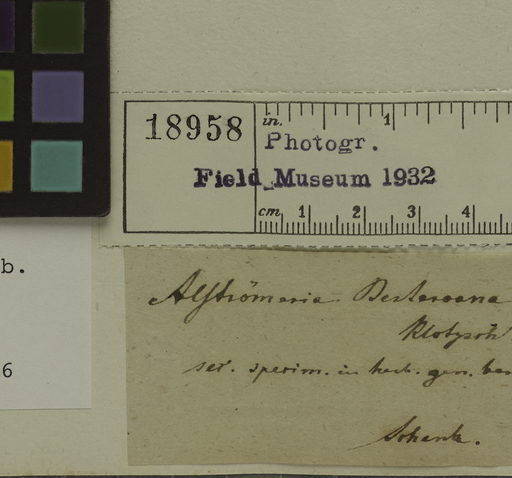 18958
in. 1
Photogr.
Field Museum 1932
cm 1 2 3 4
b.
6
Alströmeria
Klotzsch
sec. specim. in herb. gen.
Schenk.